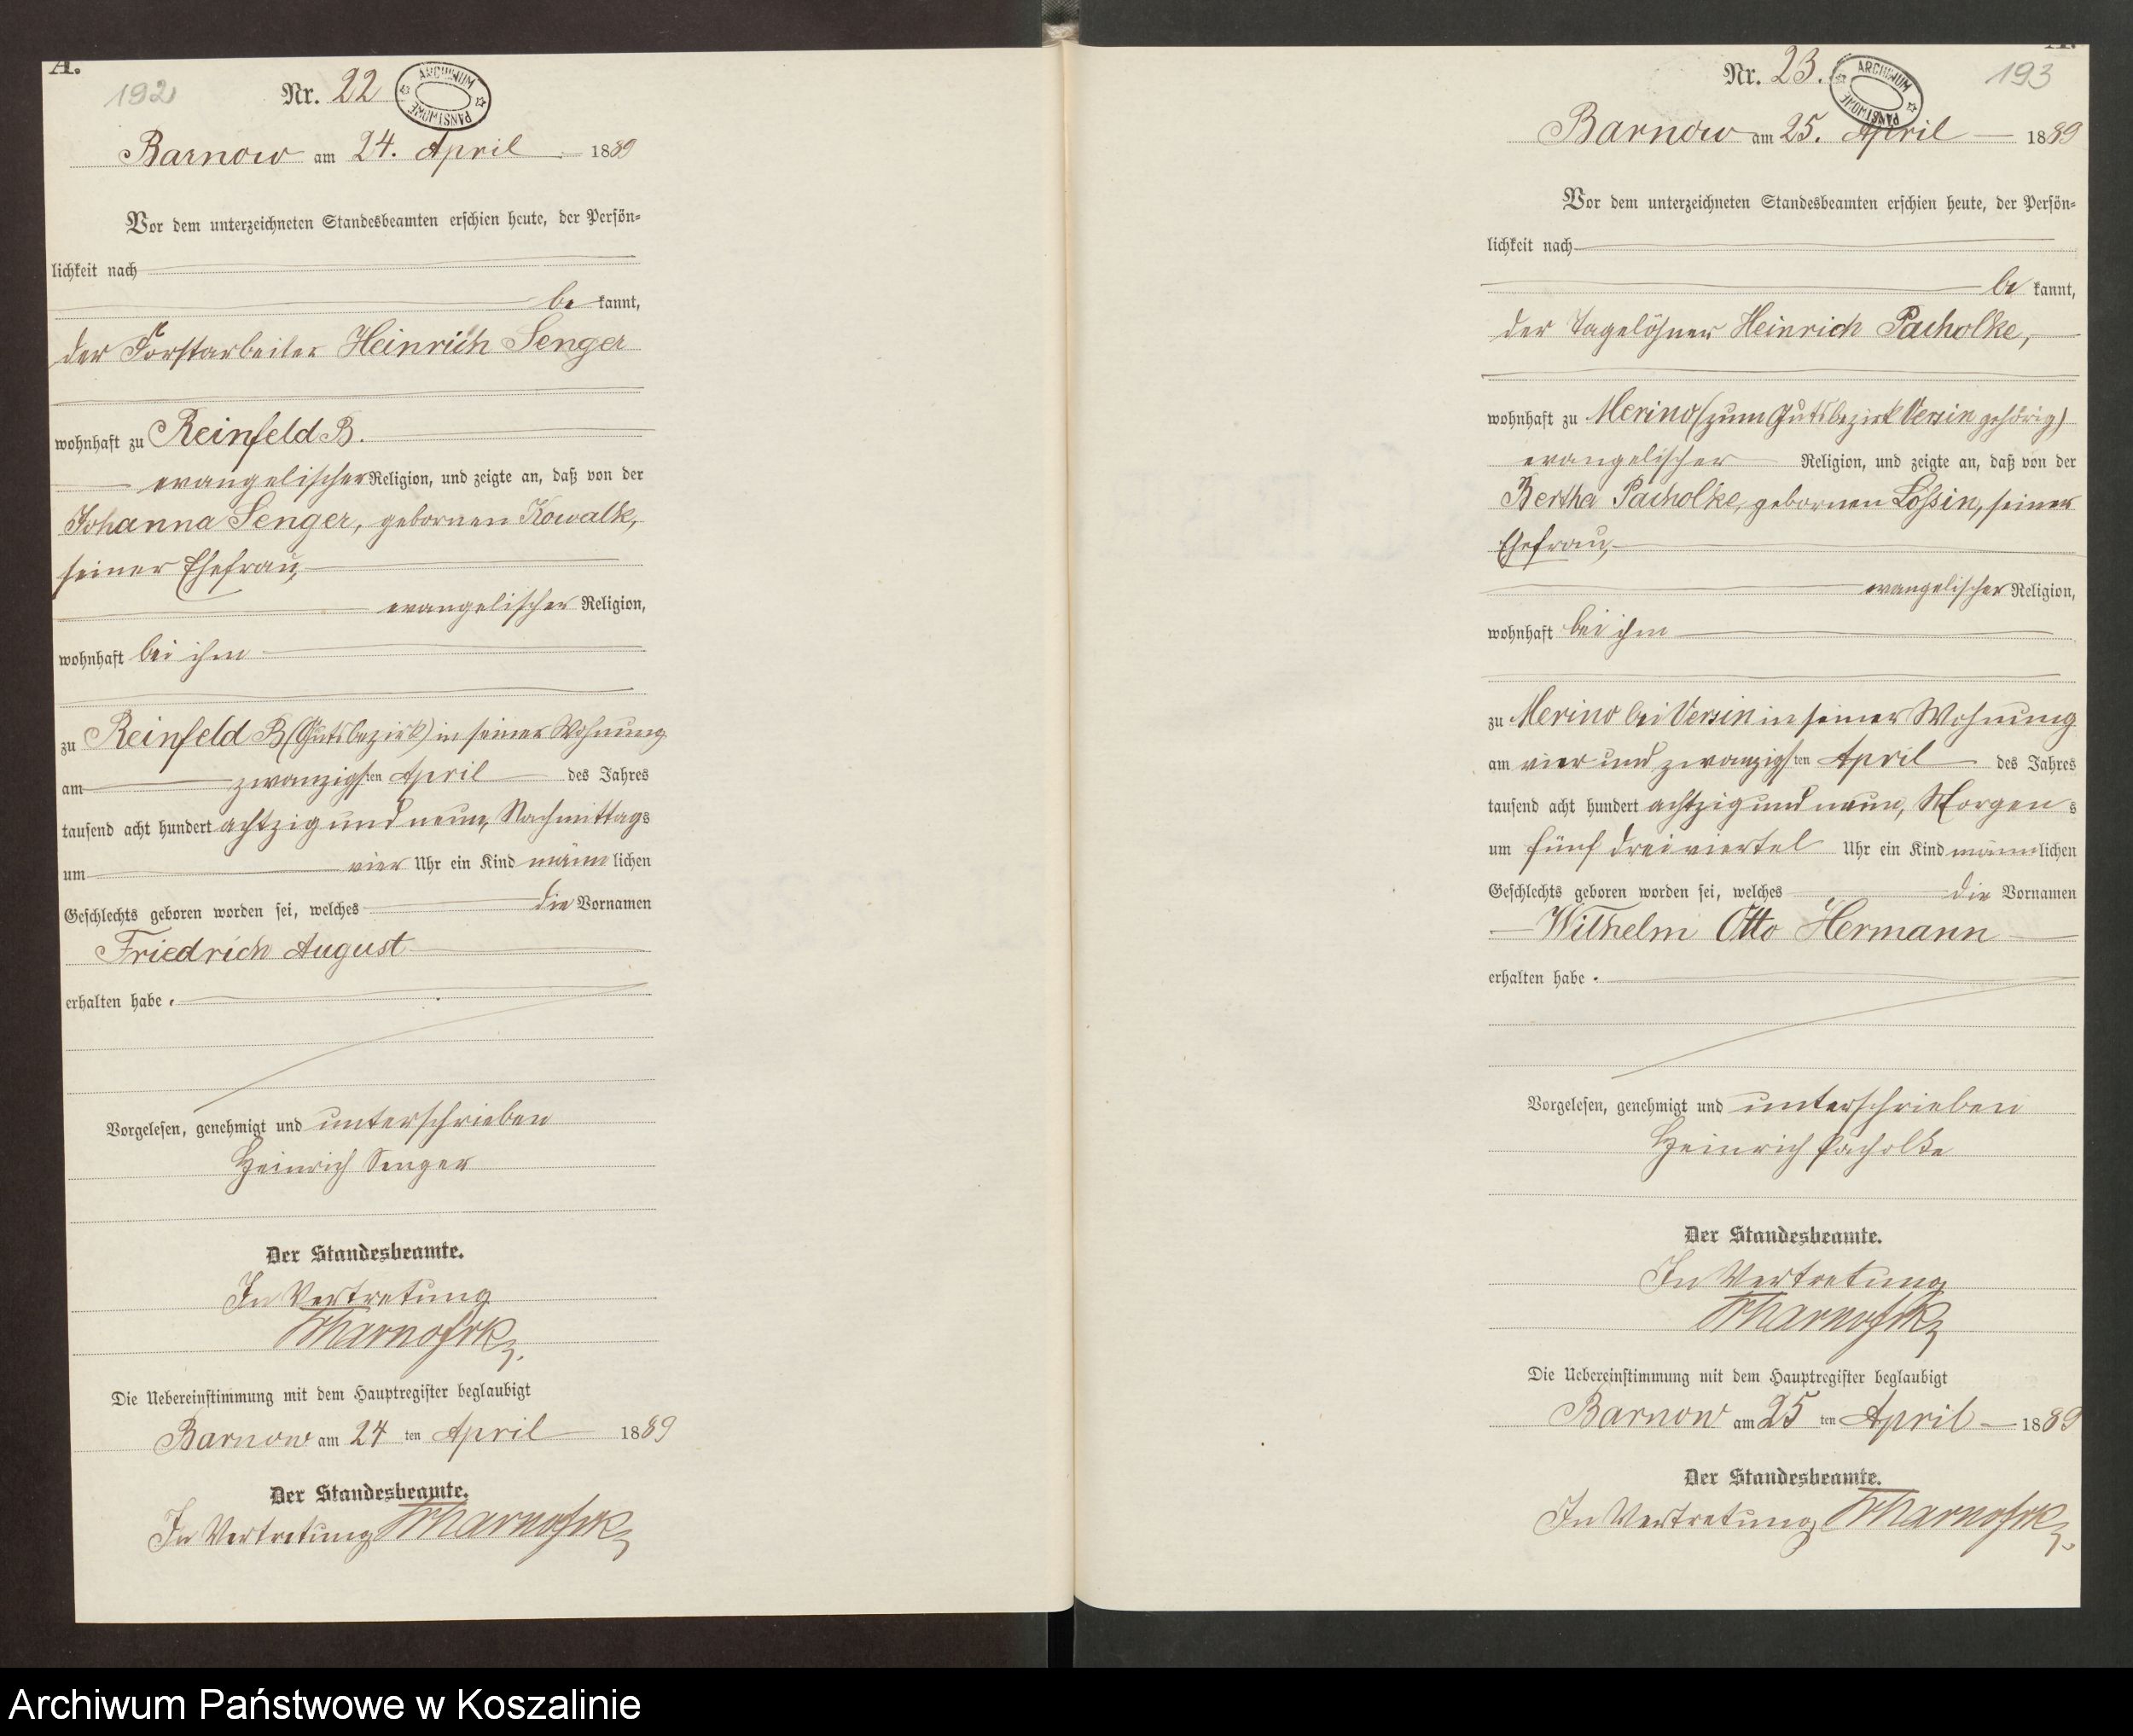 A.
192
Nr. 22
ARCHIWUM PAŃSTWOWE
Barnow am 24. April 1889
Vor dem unterzeichneten Standesbeamten erschien heute, der Persön=
lichkeit nach
be kannt,
der Forstarbeiter Heinrich Senger
wohnhaft zu Reinfeld B.
evangelischer Religion, und zeigte an, daß von der
Johanna Senger, gebornen Kowalk,
seiner Ehefrau,
evangelischer Religion,
wohnhaft bei ihm
zu Reinfeld B (Gutsbezirk) in seiner Wohnung
am zwanzigsten April des Jahres
tausend acht hundert achtzig und neun, Nachmittags
um vier Uhr ein Kind männlichen
Geschlechts geboren worden sei, welches die Vornamen
Friedrich August
erhalten habe.
Vorgelesen, genehmigt und unterschrieben
Heinrich Senger
Der Standesbeamte.
In Vertretung
Die Uebereinstimmung mit dem Hauptregister beglaubigt
Barnow am 24 ten April 1889
Der Standesbeamte.
In Vertretung
A.
Nr. 23.
193
ARCHIWUM PAŃSTWOWE
Barnow am 25. April 1889
Vor dem unterzeichneten Standesbeamten erschien heute, der Persön=
lichkeit nach
be kannt,
der Tagelöhner Heinrich Pacholke,
wohnhaft zu Merino (zum Gutsbezirk Versin gehörig)
evangelischer Religion, und zeigte an, daß von der
Bertha Pacholke, gebornen Lossin, seiner
Ehefrau,
evangelischer Religion,
wohnhaft bei ihm
zu Merino bei Versin in seiner Wohnung
am vier und zwanzigsten April des Jahres
tausend acht hundert achtzig und neun, Morgens
um fünf dreiviertel Uhr ein Kind männlichen
Geschlechts geboren worden sei, welches die Vornamen
Wilhelm Otto Hermann
erhalten habe.
Vorgelesen, genehmigt und unterschrieben
Heinrich Pacholke
Der Standesbeamte.
In Vertretung
Die Uebereinstimmung mit dem Hauptregister beglaubigt
Barnow am 25 ten April 1889
Der Standesbeamte.
In Vertretung
Archiwum Państwowe w Koszalinie